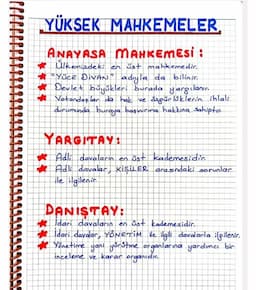 YÜKSEK MAHKEMELER
ANAYASA MAHKEMESİ :
Ülkemizdeki en üst mahkemedir.
"YÜCE DİVAN" adıyla da bilinir.
Devlet büyükleri burada yargılanır.
Vatandaşlar da hak ve özgürlüklerin ihlali
durumunda buraya başvurma hakkına sahiptir.
YARGITAY:
Adli davaların en üst kademesidir.
Adli davalar, KİŞİLER arasındaki sorunlar
ile ilgilenir.
DANIŞTAY:
İdari davaların en üst kademesidir.
İdari davalar, YÖNETİM ile ilgili davalarla ilgilenir.
Yönetime yani yürütme organlarına yardımcı bir
inceleme ve karar organıdır.